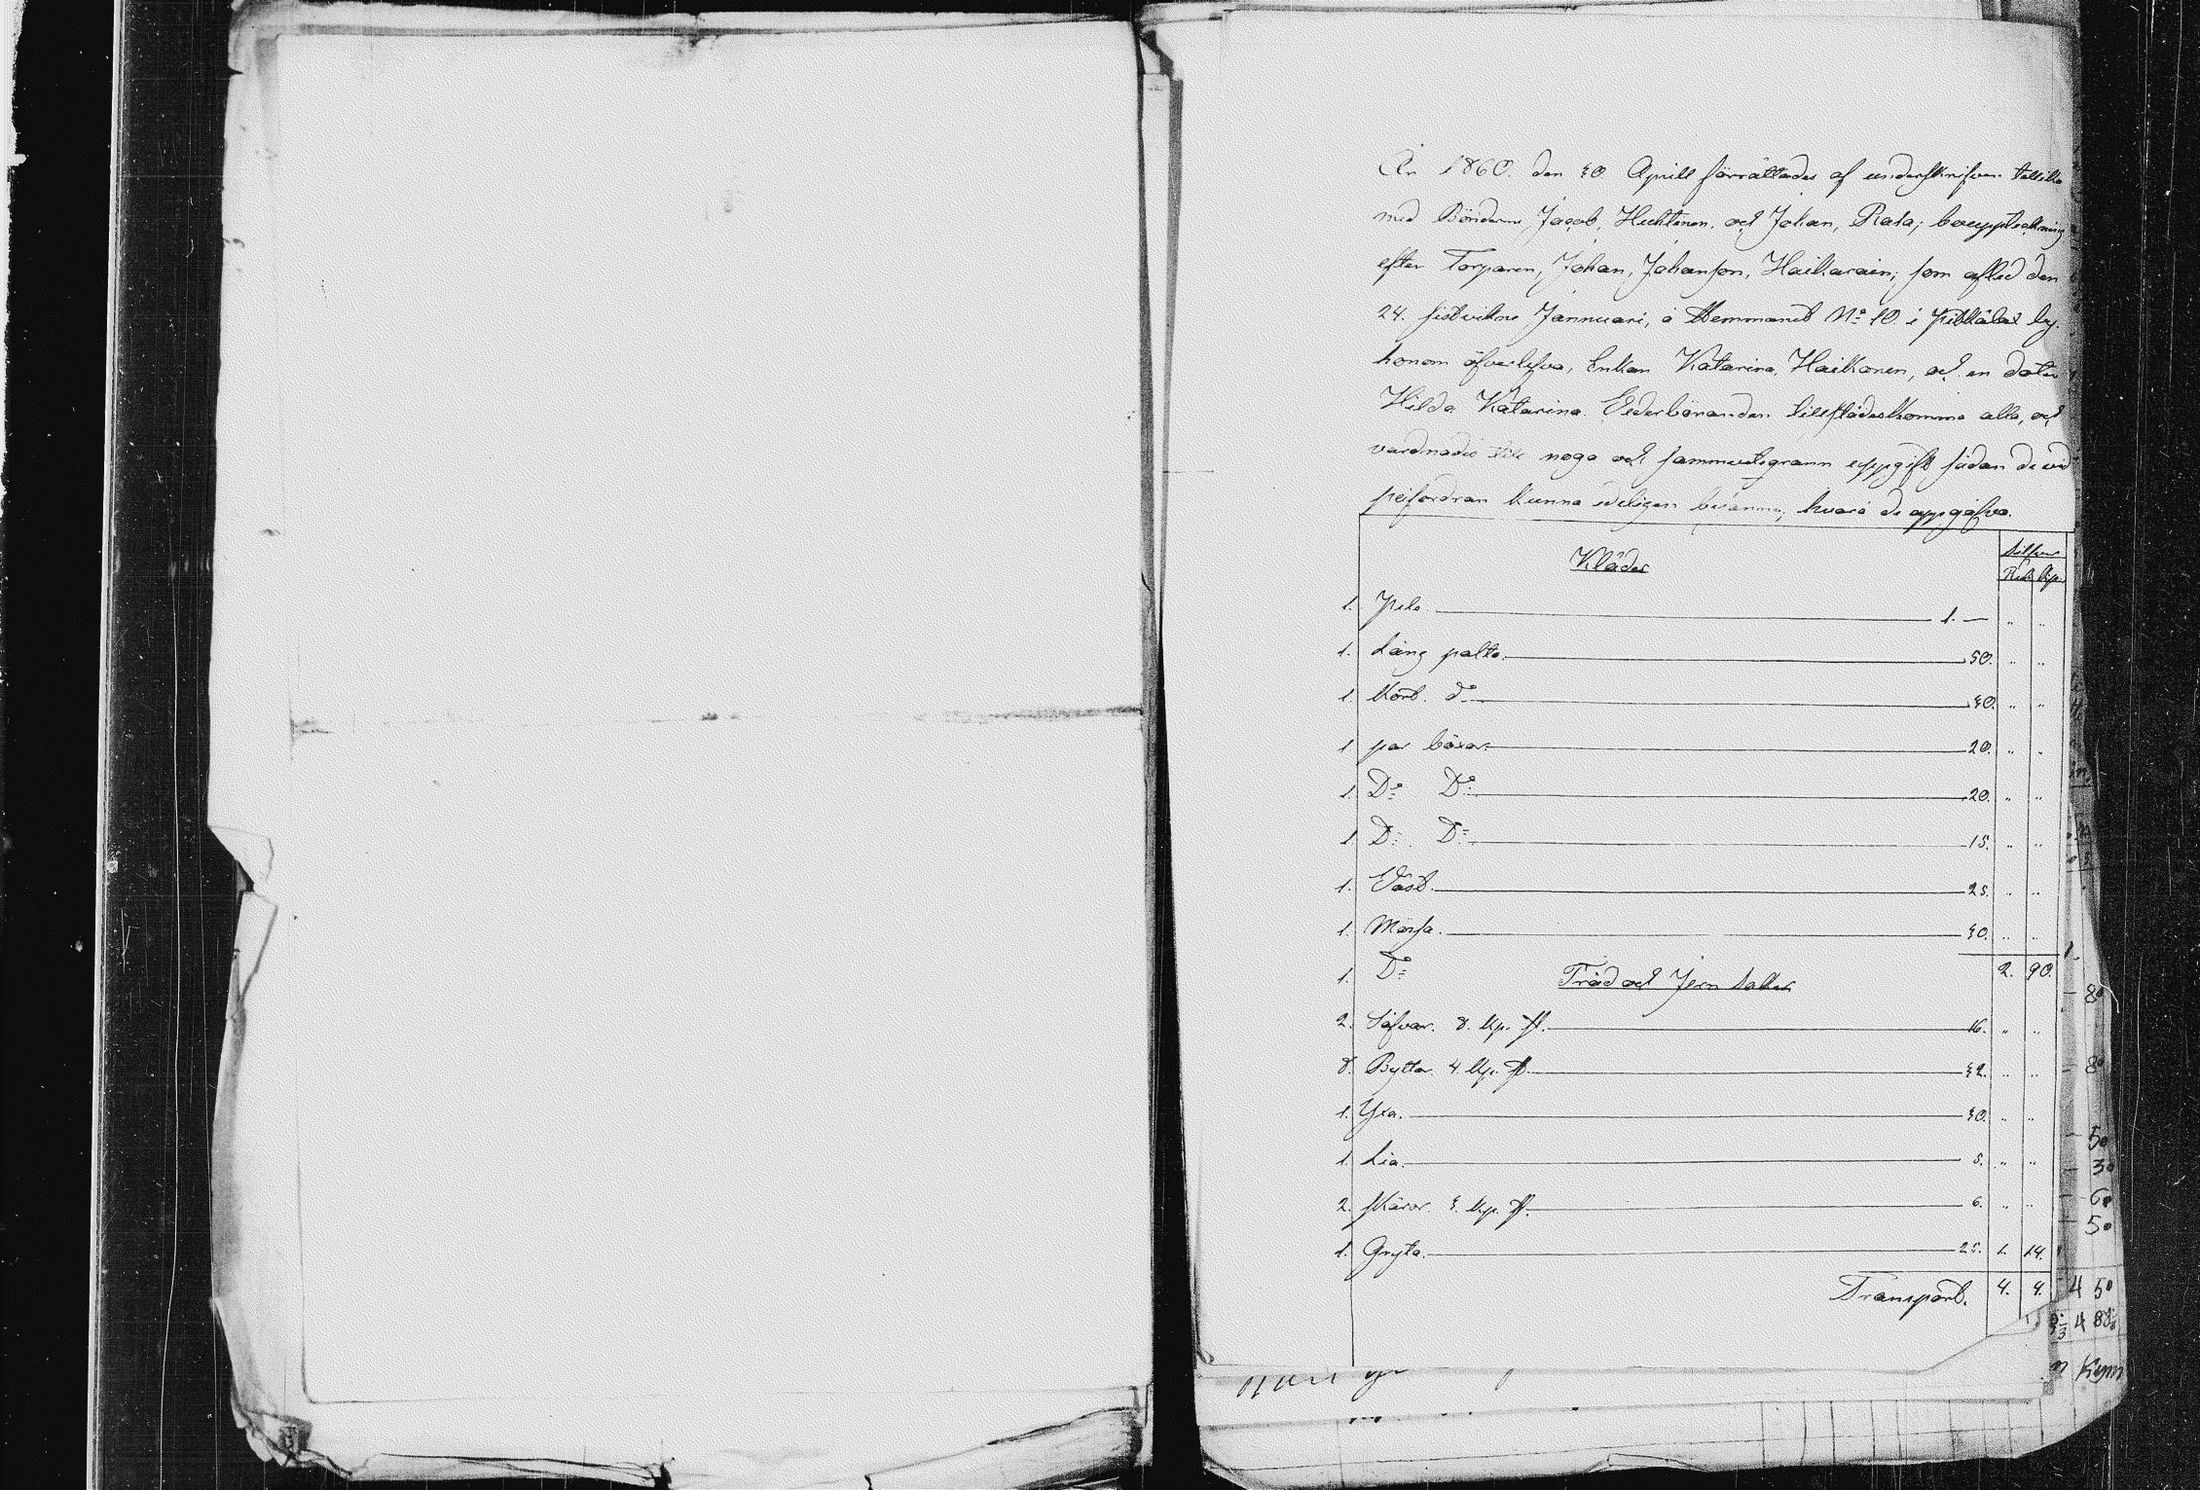 År 1860. den 30 Aprill förrättades af underskrifven tillika
med Bönderne, Jacob, Huttunen, och Johan, Rata; bouppteckning
efter Torparen, Johan, Johansson, Haikarain; som afled den
24. sistvikne Jannuari, å Hemmanet No 10. i by.
honom öfverlefva, Enkan Katarina, Haikonen, och en doter
Hilda Katarina. Vederböranden tillstädeskomma alla, och
vardnades till noga och sammvetsgrann uppgift sådan de vid
påfordran kunna edeligen besanna; hvarå de uppgåfvo.
Kläder
Silfver
Rub. Kp.
1. Pels 1. — " "
1. Lång palto. 50. " "
1 Kort. do 30. " "
1 par böxor 20. " "
1. Do Do 20. " "
1 Do Do 15. " "
1. Väst. 25. " "
1. Mössa. 30. " "
1. Do 2. 90.
Träd och Jern Saker
2. Såfvar. 8. Kp. st. 16. " "
8. Byttor. 4. Kp. st. 32. " "
1. Yxa. 30. " "
1. Lia. 5. " "
2. skäror. 3. Kp. st. 6. " "
1. Gryta. 25. 1. 14.
Transport. 4. 4.
80
80
50
30
60
50
4 50
4 88
Kym